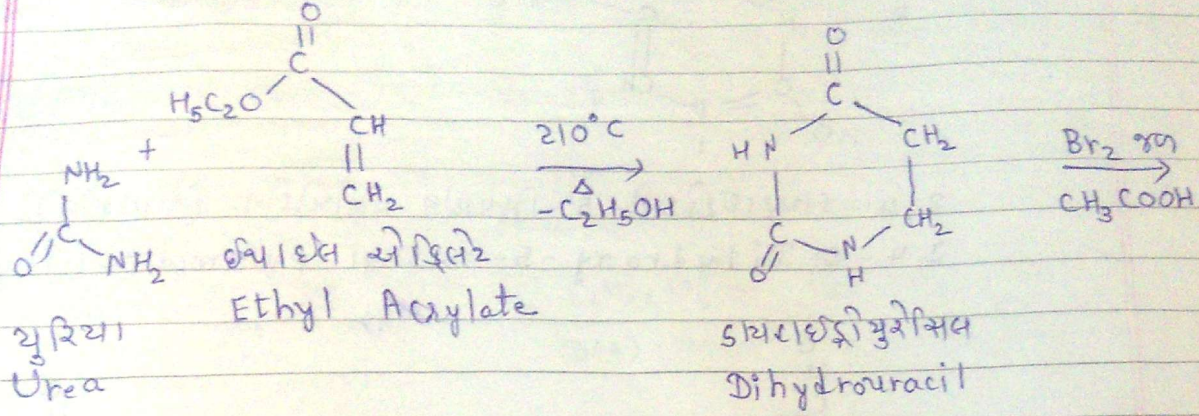 O
||
C
H₅C₂O
CH
||
CH₂
+
NH₂
C
O
NH₂
યુરિયા
Urea
ઈથાઈલ એક્રિલેટ
Ethyl Acrylate
210°C
Δ
-C₂H₅OH
O
||
C
HN
CH₂
CH₂
C
O
N
H
ડાયહાઈડ્રોયુરેસિલ
Dihydrouracil
Br₂
CH₃COOH